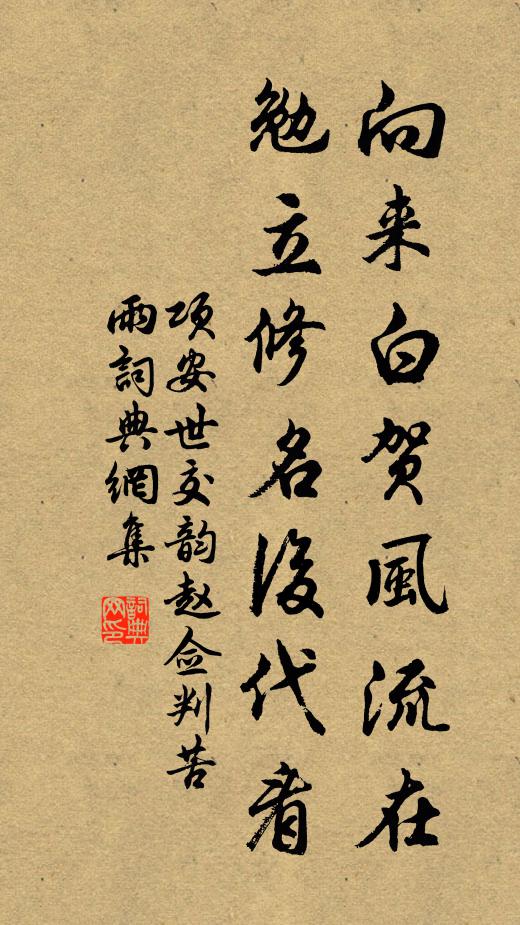 向来白贺風流在
勉立修名後代看
项安世次韵赵佥判苦
雨詞典網集
詞典网印